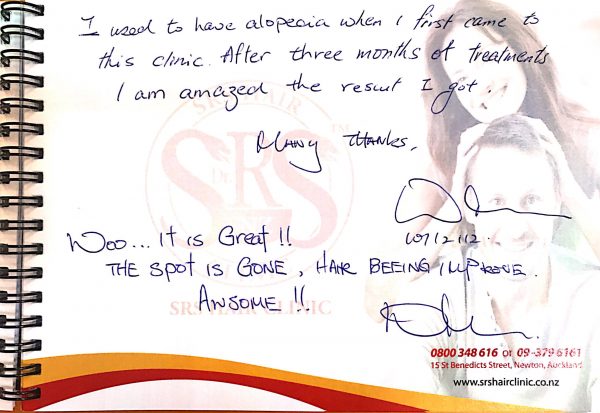 I used to have alopecia when I first came to
this clinic. After three months of treatments
I am amazed the result I got.
Many thanks,
Woo... It is Great !!
THE SPOT IS GONE, HAIR BEEING IMPROVE.
AWSOME !!
SRS HAIR CLINIC
0800 348 616 or 09-379 6161
15 St Benedicts Street, Newton, Auckland
www.srshairclinic.co.nz